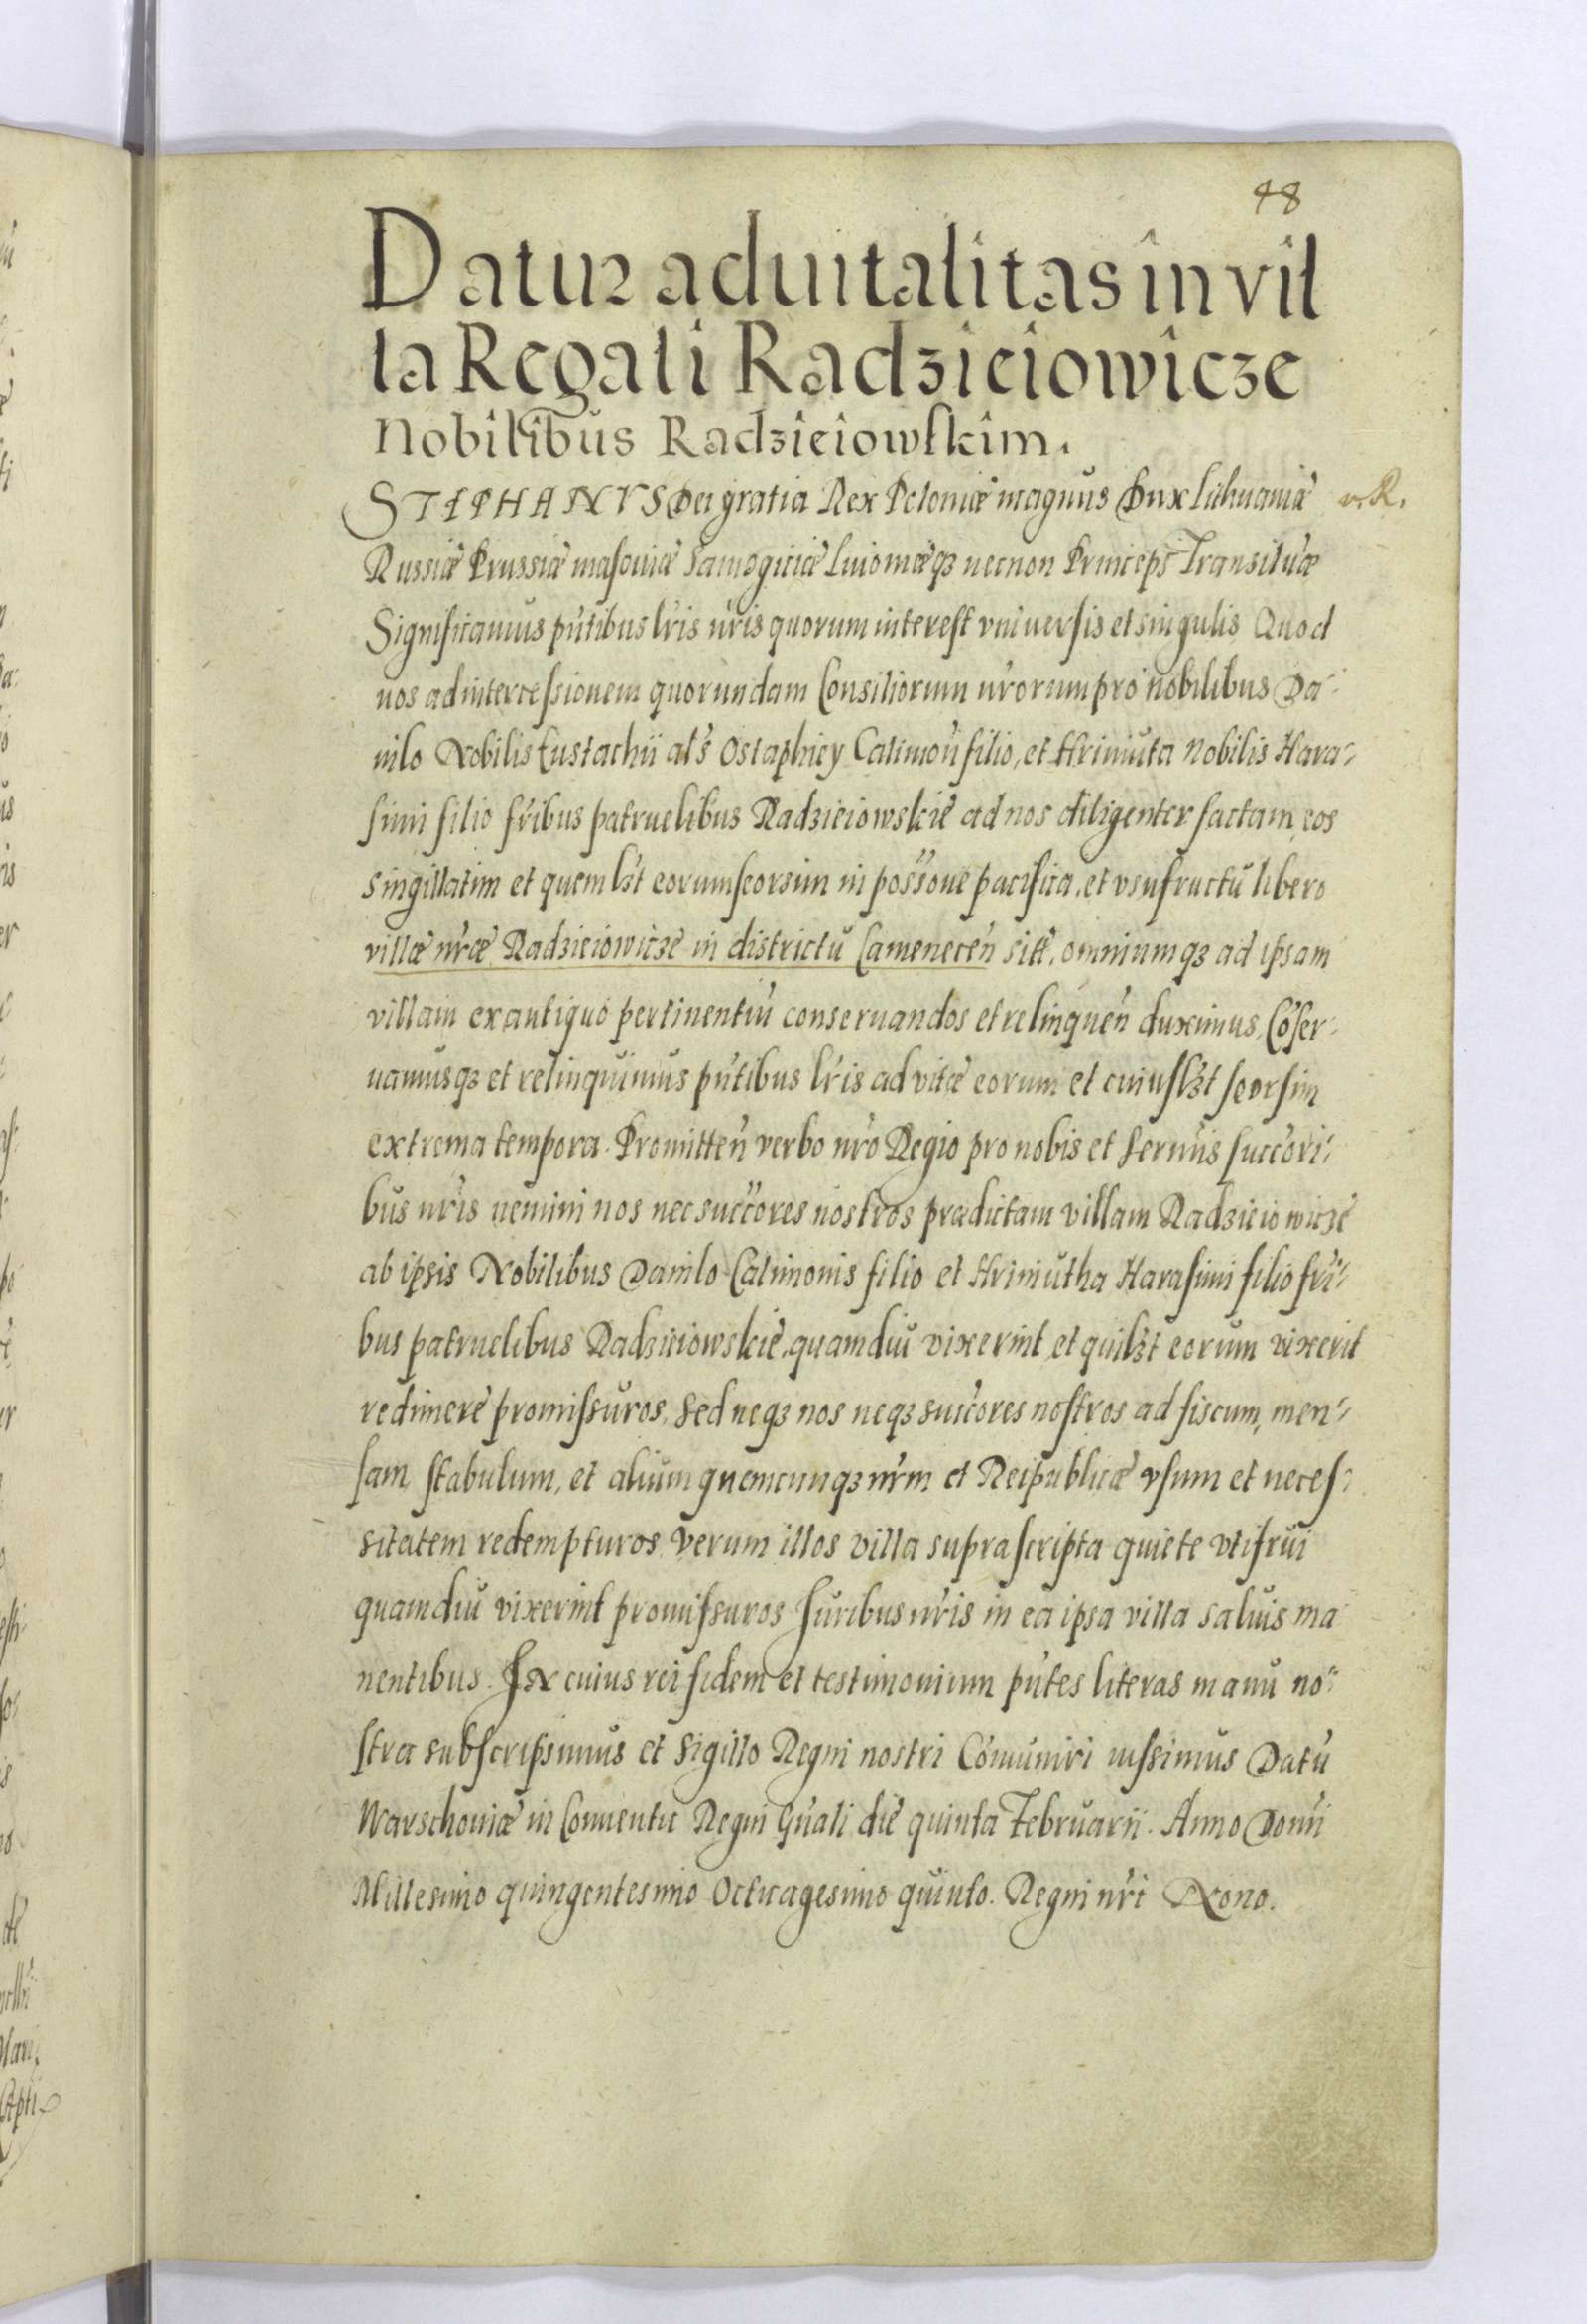 48
Datur aduitalitas in vil
la Regali Radzieiowicze
Nobilibus Radzieiowskim.
STEPHANVS Dei gratia Rex Poloniæ magnus Dux Lithuaniæ v. R.
Russiæ Prussiæ masouiæ Samogitiæ Liuoniæqȝ necnon Princeps Transiluæ
Significamus pn̄tibus lr̄is nr̄is quorum interest vniuersis et singulis Quod
nos ad intercessionem quorundam Consiliorum nr̄orum pro nobilibus Da-
nilo Nobilis Eustachii als̄ Ostaphiey Calimon̄ filio, et Hriniuta Nobilis Hara-
simi filio fr̄ibus patruelibus Radzieiowskie ad nos diligenter factam, eos
singillatim et quemlȝt eorum seorsim in poss̄one pacifica, et vsufructu libero
villæ nr̄æ Radzieiowicze in districtu Camenecen̄ sitt. omniumqȝ ad ipsam
villam ex antiquo pertinentiū conseruandos et relinquen̄ duximus. Cōser-
uamusqȝ et relinquimus pn̄tibus lr̄is ad vitæ eorum et cuiuslȝt seorsim
extrema tempora. Promitten̄ verbo nr̄o Regio pro nobis et Seren̄is succ̄ori-
bus nr̄is nemini nos nec succ̄ores nostros prædictam villam Radzieiowicze
ab ipsis Nobilibus Danilo Calimonis filio et Hriniutha Harasimi filio fr̄i-
bus patruelibus Radzieiowskie, quamdiu vixerint et quilȝt eorum vixerit
redimere promissuros. Sed neqȝ nos neqȝ succ̄ores nostros ad fiscum, men-
sam, stabulum, et alium quemcunqȝ nr̄m et Reipublicæ vsum et neces-
sitatem redempturos. Verum illos villa suprascripta quiete vtifrui
quamdiu vixerint promissuros Iuribus nr̄is in ea ipsa villa saluis ma
nentibus. IN cuius rei fidem et testimonium pn̄tes literas manu no-
stra subscripsimus et Sigillo Regni nostri Com̄uniri iussimus Datū
Warschouiæ in Conuentu Regni Gn̄ali die quinta Februarii. Anno Domi
Millesimo quingentesimo Octuagesimo quinto. Regni nr̄i Nono.